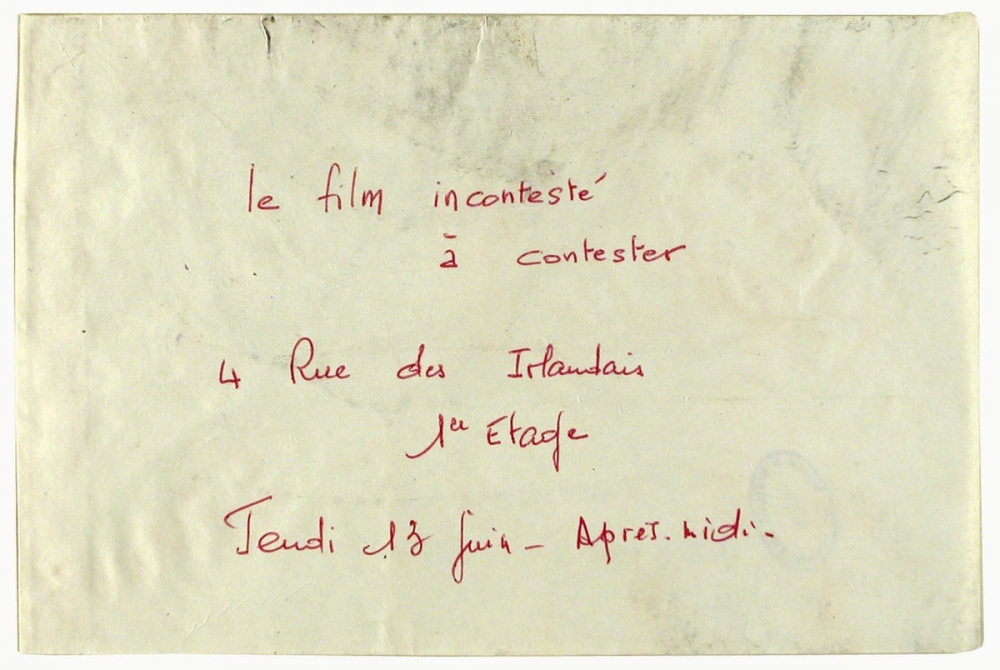 le film incontesté
à contester
4 Rue des Irlandais
1er Etage
Jeudi 13 juin - Après-midi -